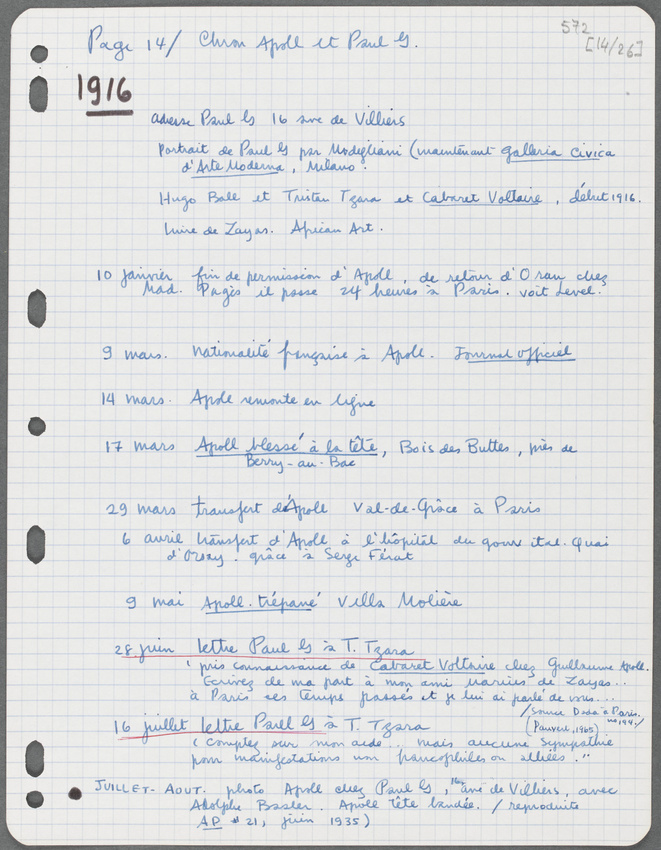 Page 14/ Chron Apoll et Paul G.
572
[14/26]
1916
adresse Paul G 16 ave de Villiers
Portrait de Paul G par Modigliani (maintenant Galleria Civica
d'Arte Moderna, Milano.
Hugo Ball et Tristan Tzara et Cabaret Voltaire, début 1916.
Livre de Zayas. African Art.
10 Janvier fin de permission d'Apoll, de retour d'Oran chez
Mad. Pagès il passe 24 heures à Paris. voit Level.
9 mars. Nationalité française à Apoll. Journal Officiel
14 mars. Apoll remonte en ligne
17 mars Apoll blessé à la tête, Bois des Buttes, près de
Berry-au-Bac
29 mars transfert d'Apoll Val-de-Grâce à Paris
6 avril transfert d'Apoll à l'hôpital du gouv ital. Quai
d'Orsay. grâce à Serge Férat
9 mai Apoll. trépané Villa Molière
28 juin lettre Paul G à T. Tzara
"pris connaissance de Cabaret Voltaire chez Guillaume Apoll.
Ecrivez de ma part à mon ami Marius de Zayas...
à Paris ces temps passés et je lui ai parlé de vous...
/Source Dada à Paris.
(Pauvert, 1965)
16 juillet lettre Paul G à T. Tzara
"Comptez sur mon aide.. mais aucune sympathie
pour manifestations non francophiles ou alliées.."
JUILLET-AOUT. photo Apoll chez Paul G, 16 ave de Villiers, avec
Adolphe Basler. Apoll tête bandée. /reproduite
AP # 21, juin 1935)